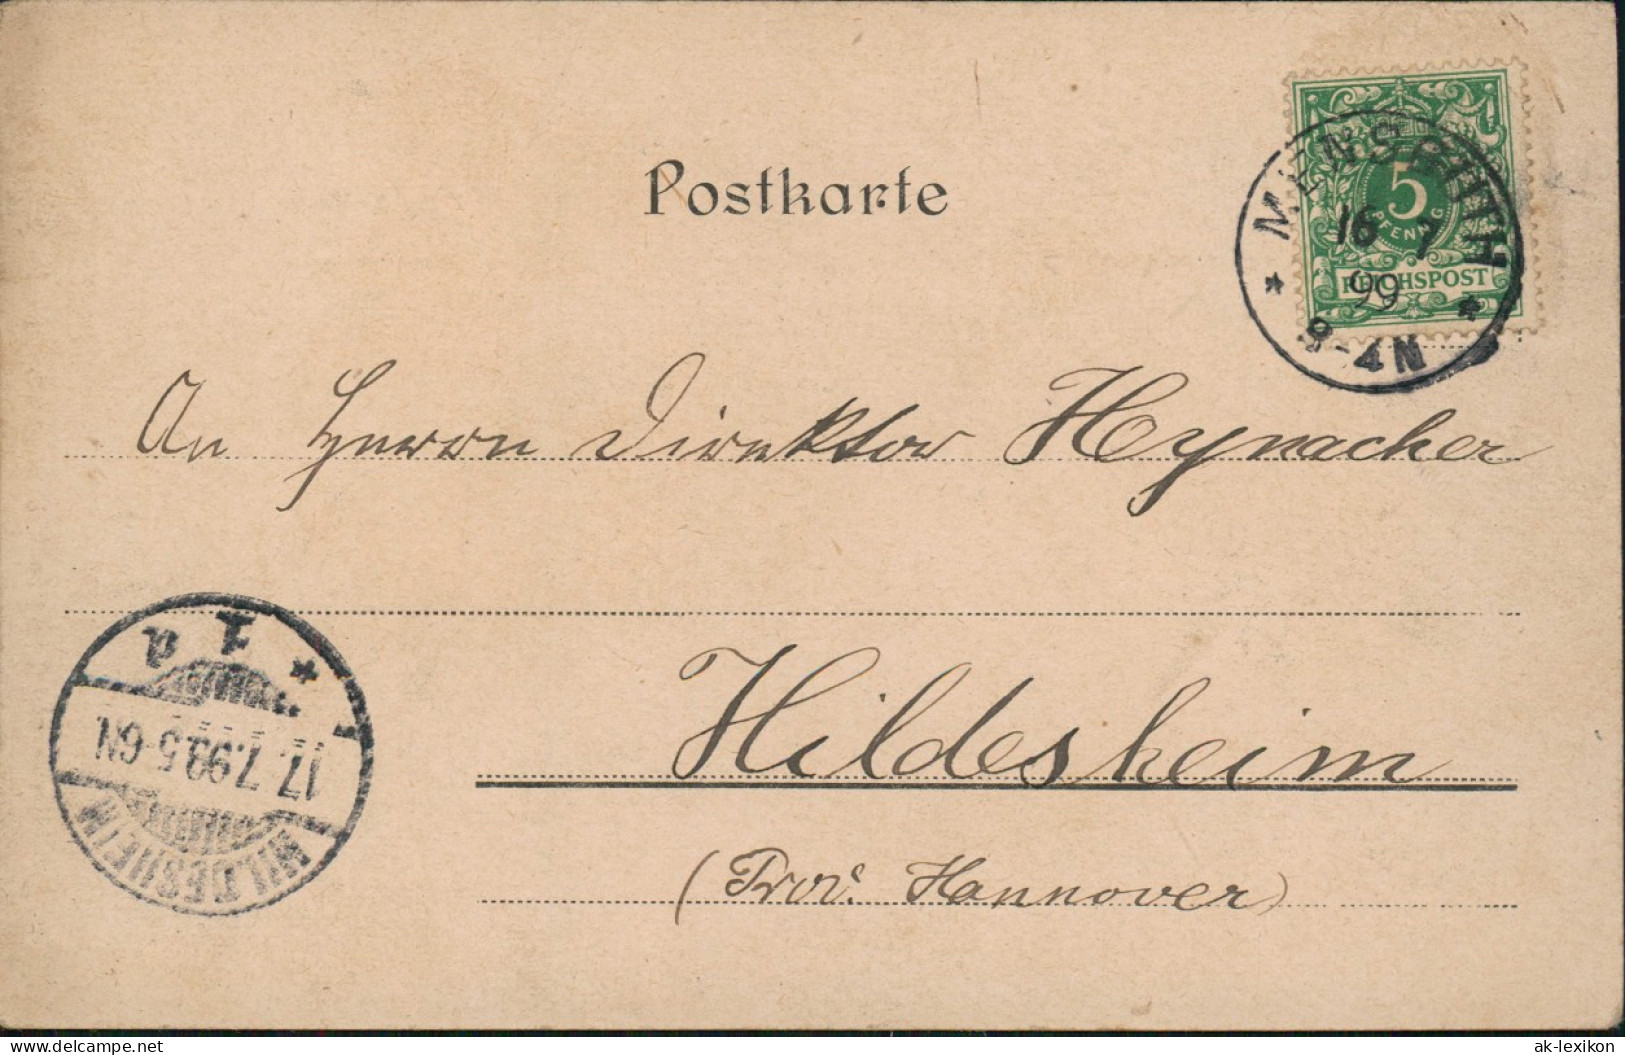 Postkarte
MENSGUTH
5
PFENNIG
16 7
99
REICHSPOST
3-4N
An Herrn Direktor Heynacher
1 d
17. 7. 99. 5-6N
HILDESHEIM
Hildesheim
(Prov. Hannover)
www.delcampe.net
ak-lexikon